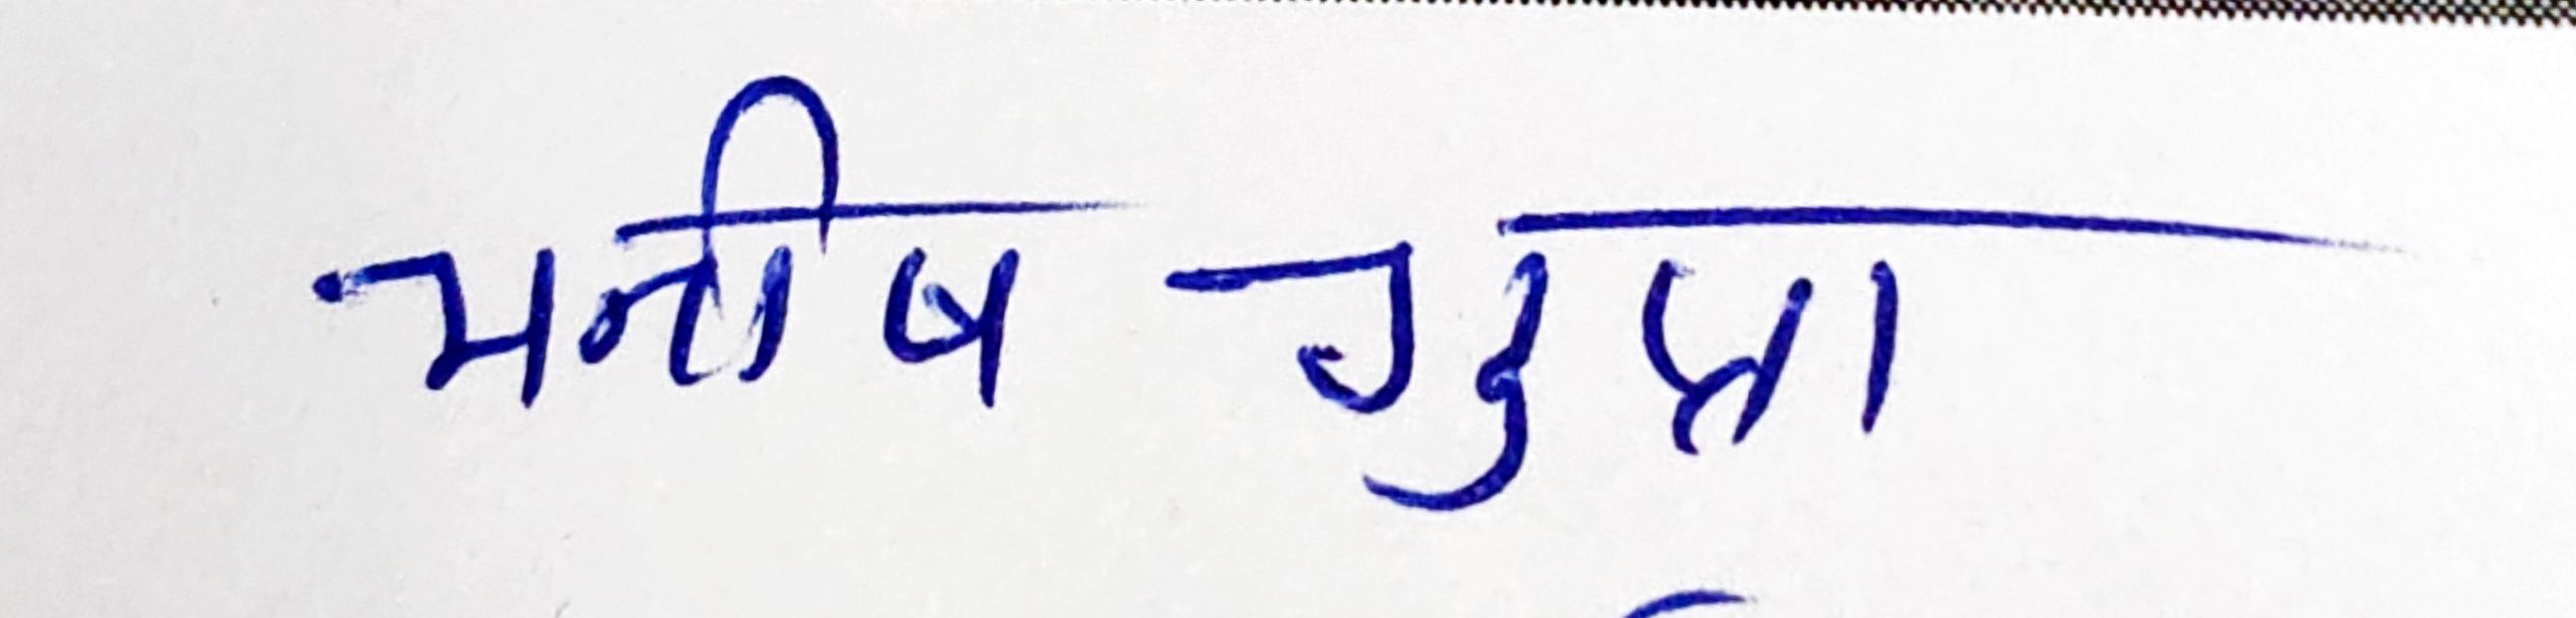 मनीष गुप्ता